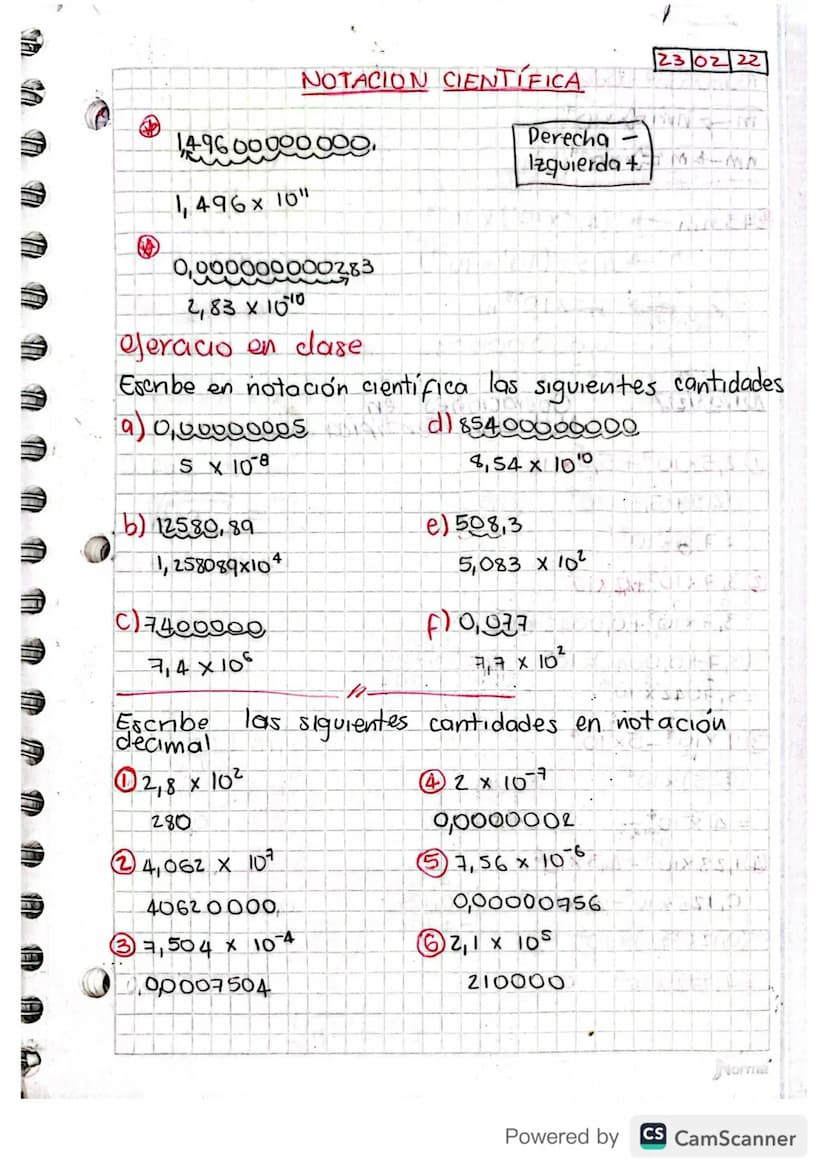 23 02 22
NOTACION CIENTÍFICA
149600000000,
Derecha -
Izquierda +
1,496 x 10¹¹
0,000000000283
2,83 x 10⁻¹⁰
ejercicio en clase
Escribe en notación científica las siguientes cantidades
a) 0,00000005
5 x 10⁻⁸
d) 85400000000
8,54 x 10¹⁰
b) 12580,89
1,258089x10⁴
e) 508,3
5,083 x 10²
c) 7400000
7,4 x 10⁶
f) 0,077
7,7 x 10²
Escribe las siguientes cantidades en notación
decimal
① 2,8 x 10²
280
④ 2 x 10⁻⁷
0,0000002
② 4,062 x 10⁷
40620000,
⑤ 7,56 x 10⁻⁶
0,00000756
③ 7,504 x 10⁻⁴
0,0007504
⑥ 2,1 x 10⁵
210000
Norma
Powered by CS CamScanner